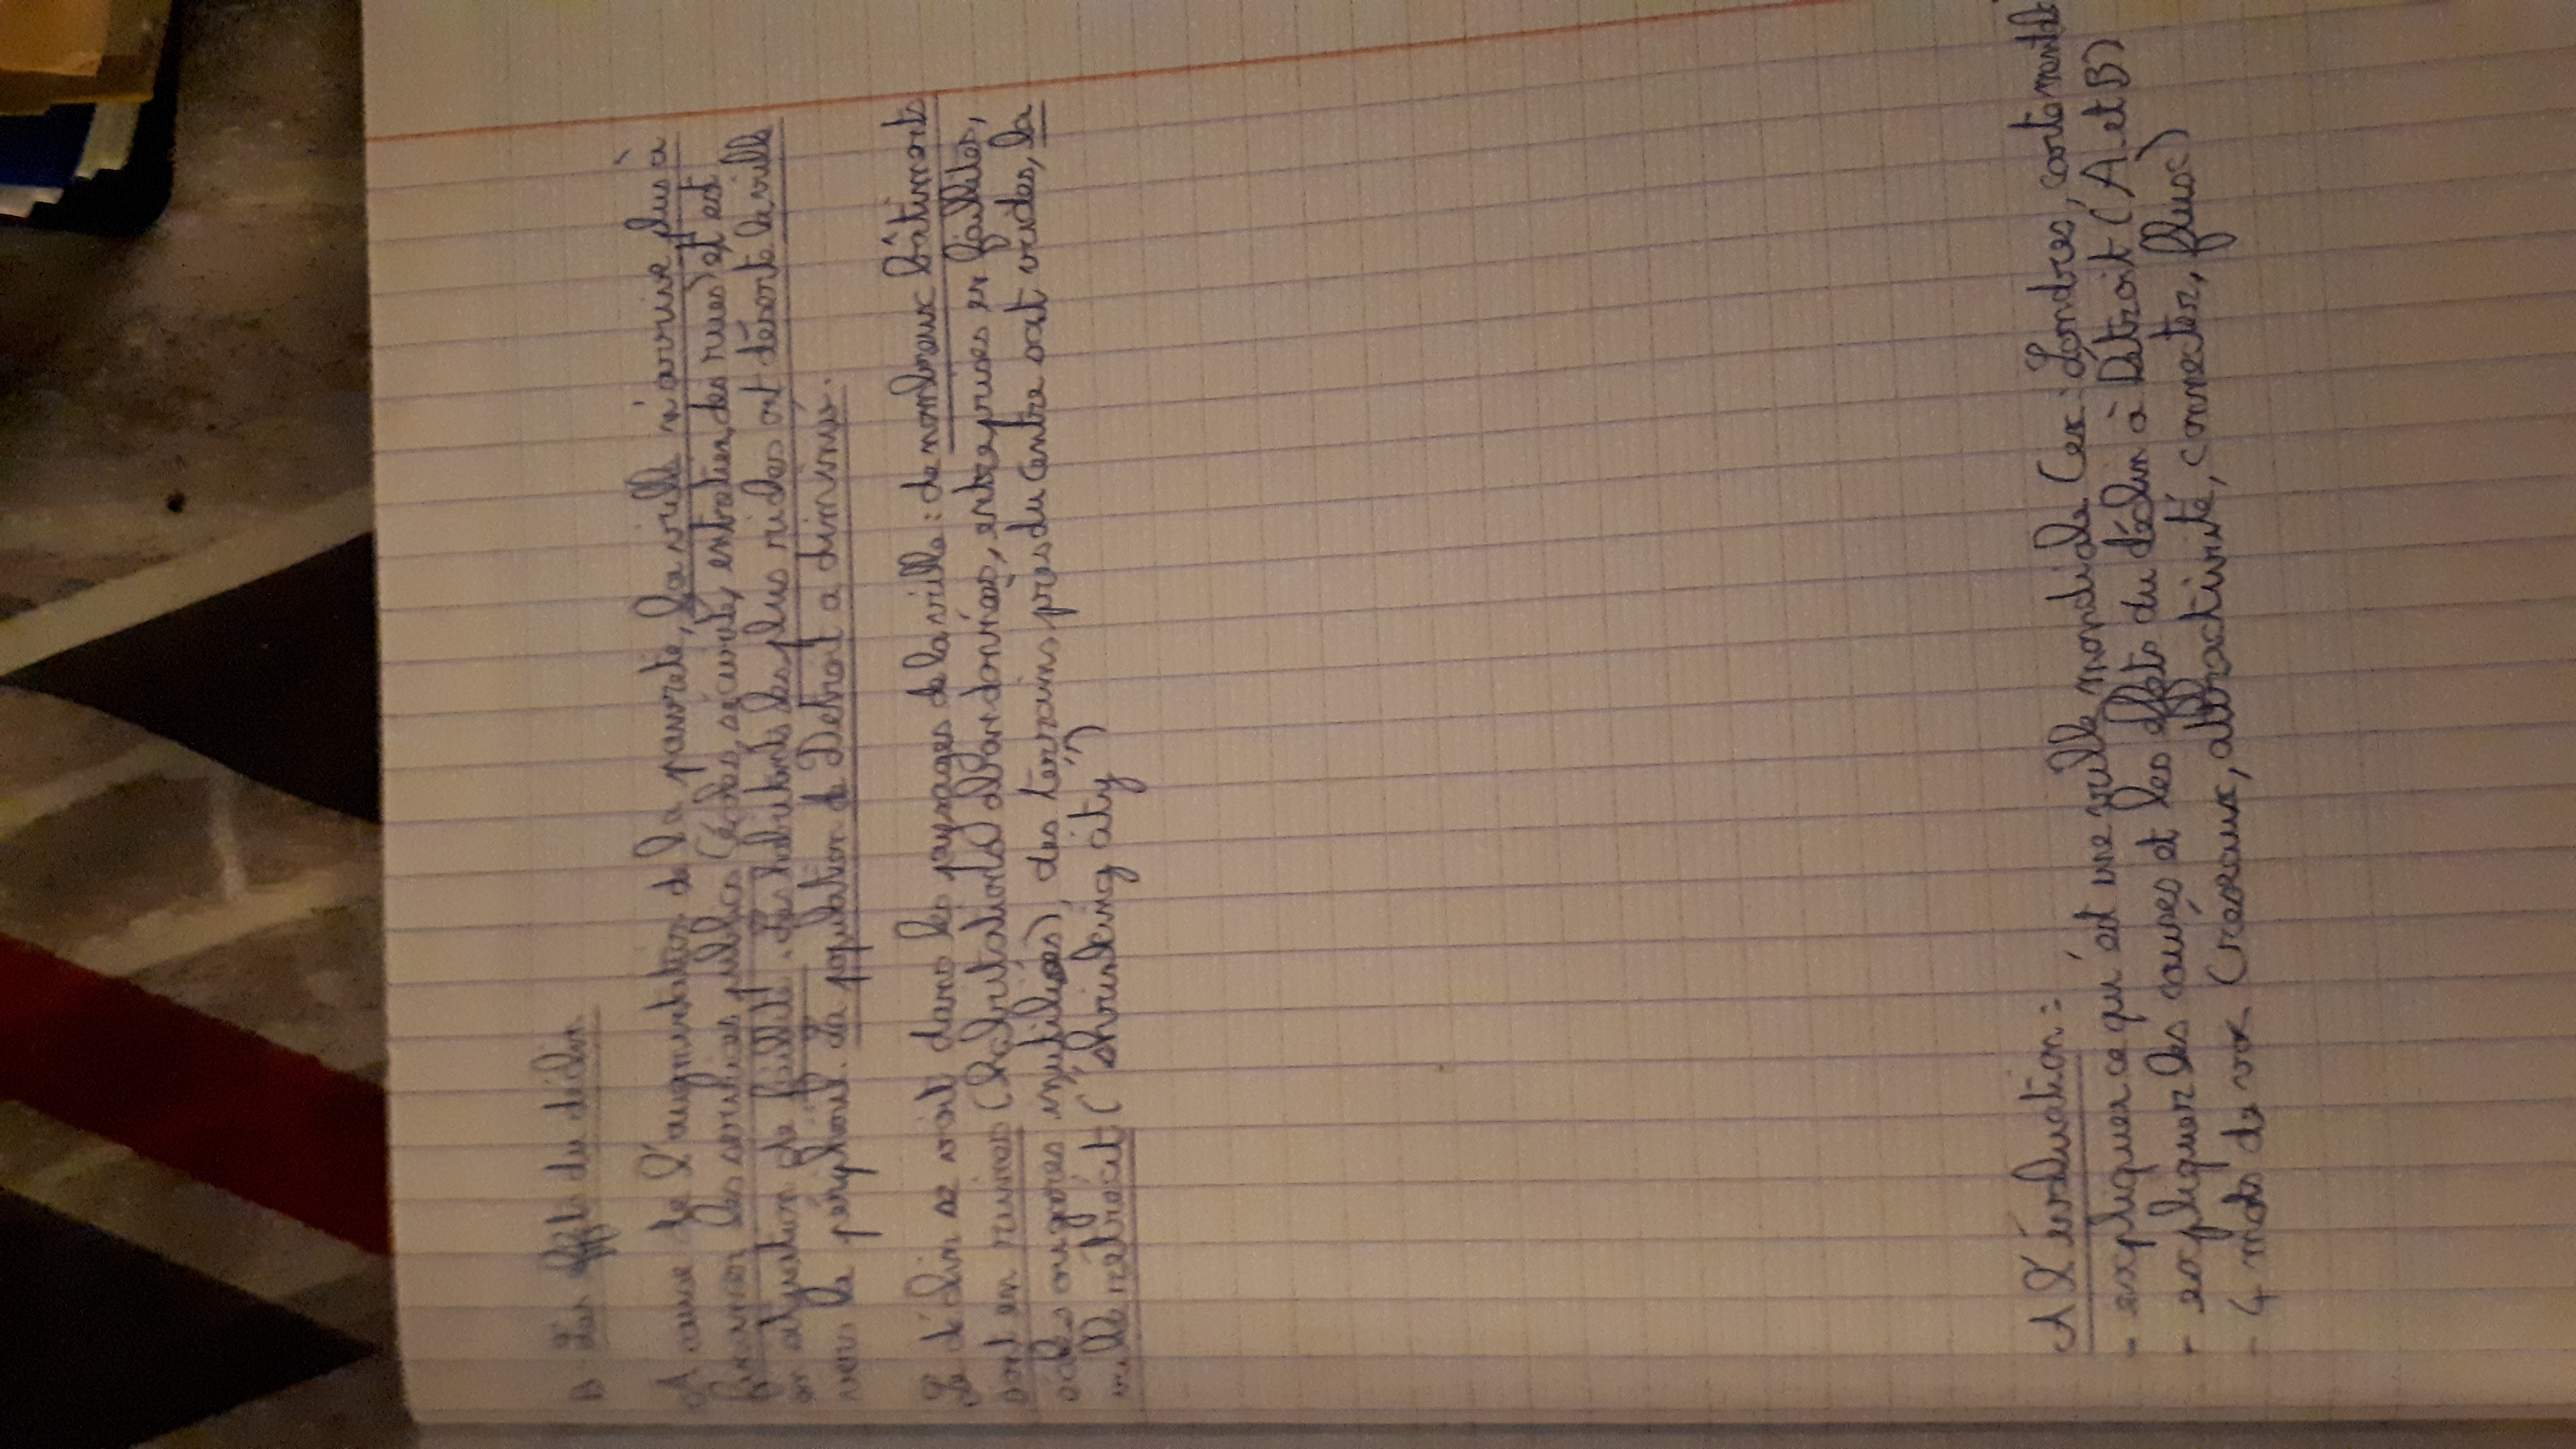 B Les effets du déclin
A cause de l'augmentation de la pauvreté, la ville n'arrive plus à
financer les services publics (écoles, sécurité, entretien des rues) et est
en situation de faillite. Les habitants les plus riches ont déserté la ville
vers le périphérie. La population de Detroit a diminué.
Le déclin se voit dans les paysages de la ville : de nombreux bâtiments
sont en ruines (habitations abandonnées, entreprises en faillites,
écoles ou gares inutilisées), des terrains près du centre sont vides, la
ville rétrécit ("shrinking city")
A l'évaluation :
- expliquer ce qu'est une ville mondiale (ex : Londres, carte mentale
- expliquer les causes et les effets du déclin à Détroit (A et B)
- 4 mots de voc (réseaux, attractivité, connecter, flux)